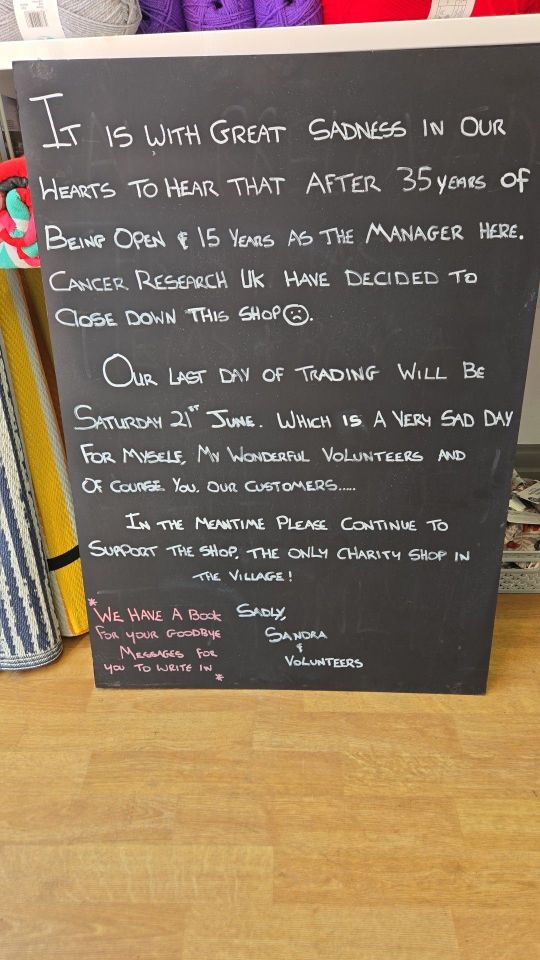 It is with great sadness in our
hearts to hear that after 35 years of
being open & 15 years as the manager here.
Cancer Research UK have decided to
close down this shop☹.
Our last day of trading will be
Saturday 21st June. Which is a very sad day
for myself, my wonderful volunteers and
of course you, our customers.....
In the meantime please continue to
support the shop, the only charity shop in
the village!
*We have a book
for your goodbye
messages for
you to write in*
Sadly,
Sandra
&
Volunteers